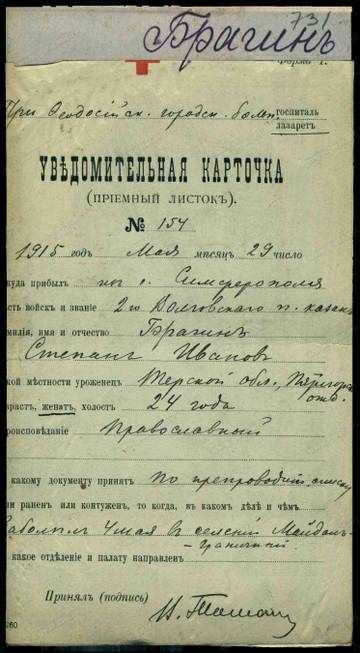 731
Брагинъ
Форма 1.
При Ѳеодосійск. городск. больн. госпиталь
лазаретъ
УВѢДОМИТЕЛЬНАЯ КАРТОЧКА
(ПРІЕМНЫЙ ЛИСТОКЪ).
№ 154
1915 годъ Мая мѣсяцъ 29 число
куда прибылъ из г. Симферополя
сть войскъ и званіе 2го Волгскаго п. казакъ
милія, имя и отчество Брагинъ
Степанъ Ивановъ
кой мѣстности уроженецъ Терской обл., Пятигорск.
отд.
зрастъ, женатъ, холостъ 24 года
роисповѣданіе Православный
какому документу принятъ по препроводит. списку
ли раненъ или контуженъ, то когда, въ какомъ дѣлѣ и чѣмъ
Заболѣлъ 4 мая в селеніи Майдан
-Граничный
какое отдѣленіе и палату направленъ
Принялъ (подпись)
260